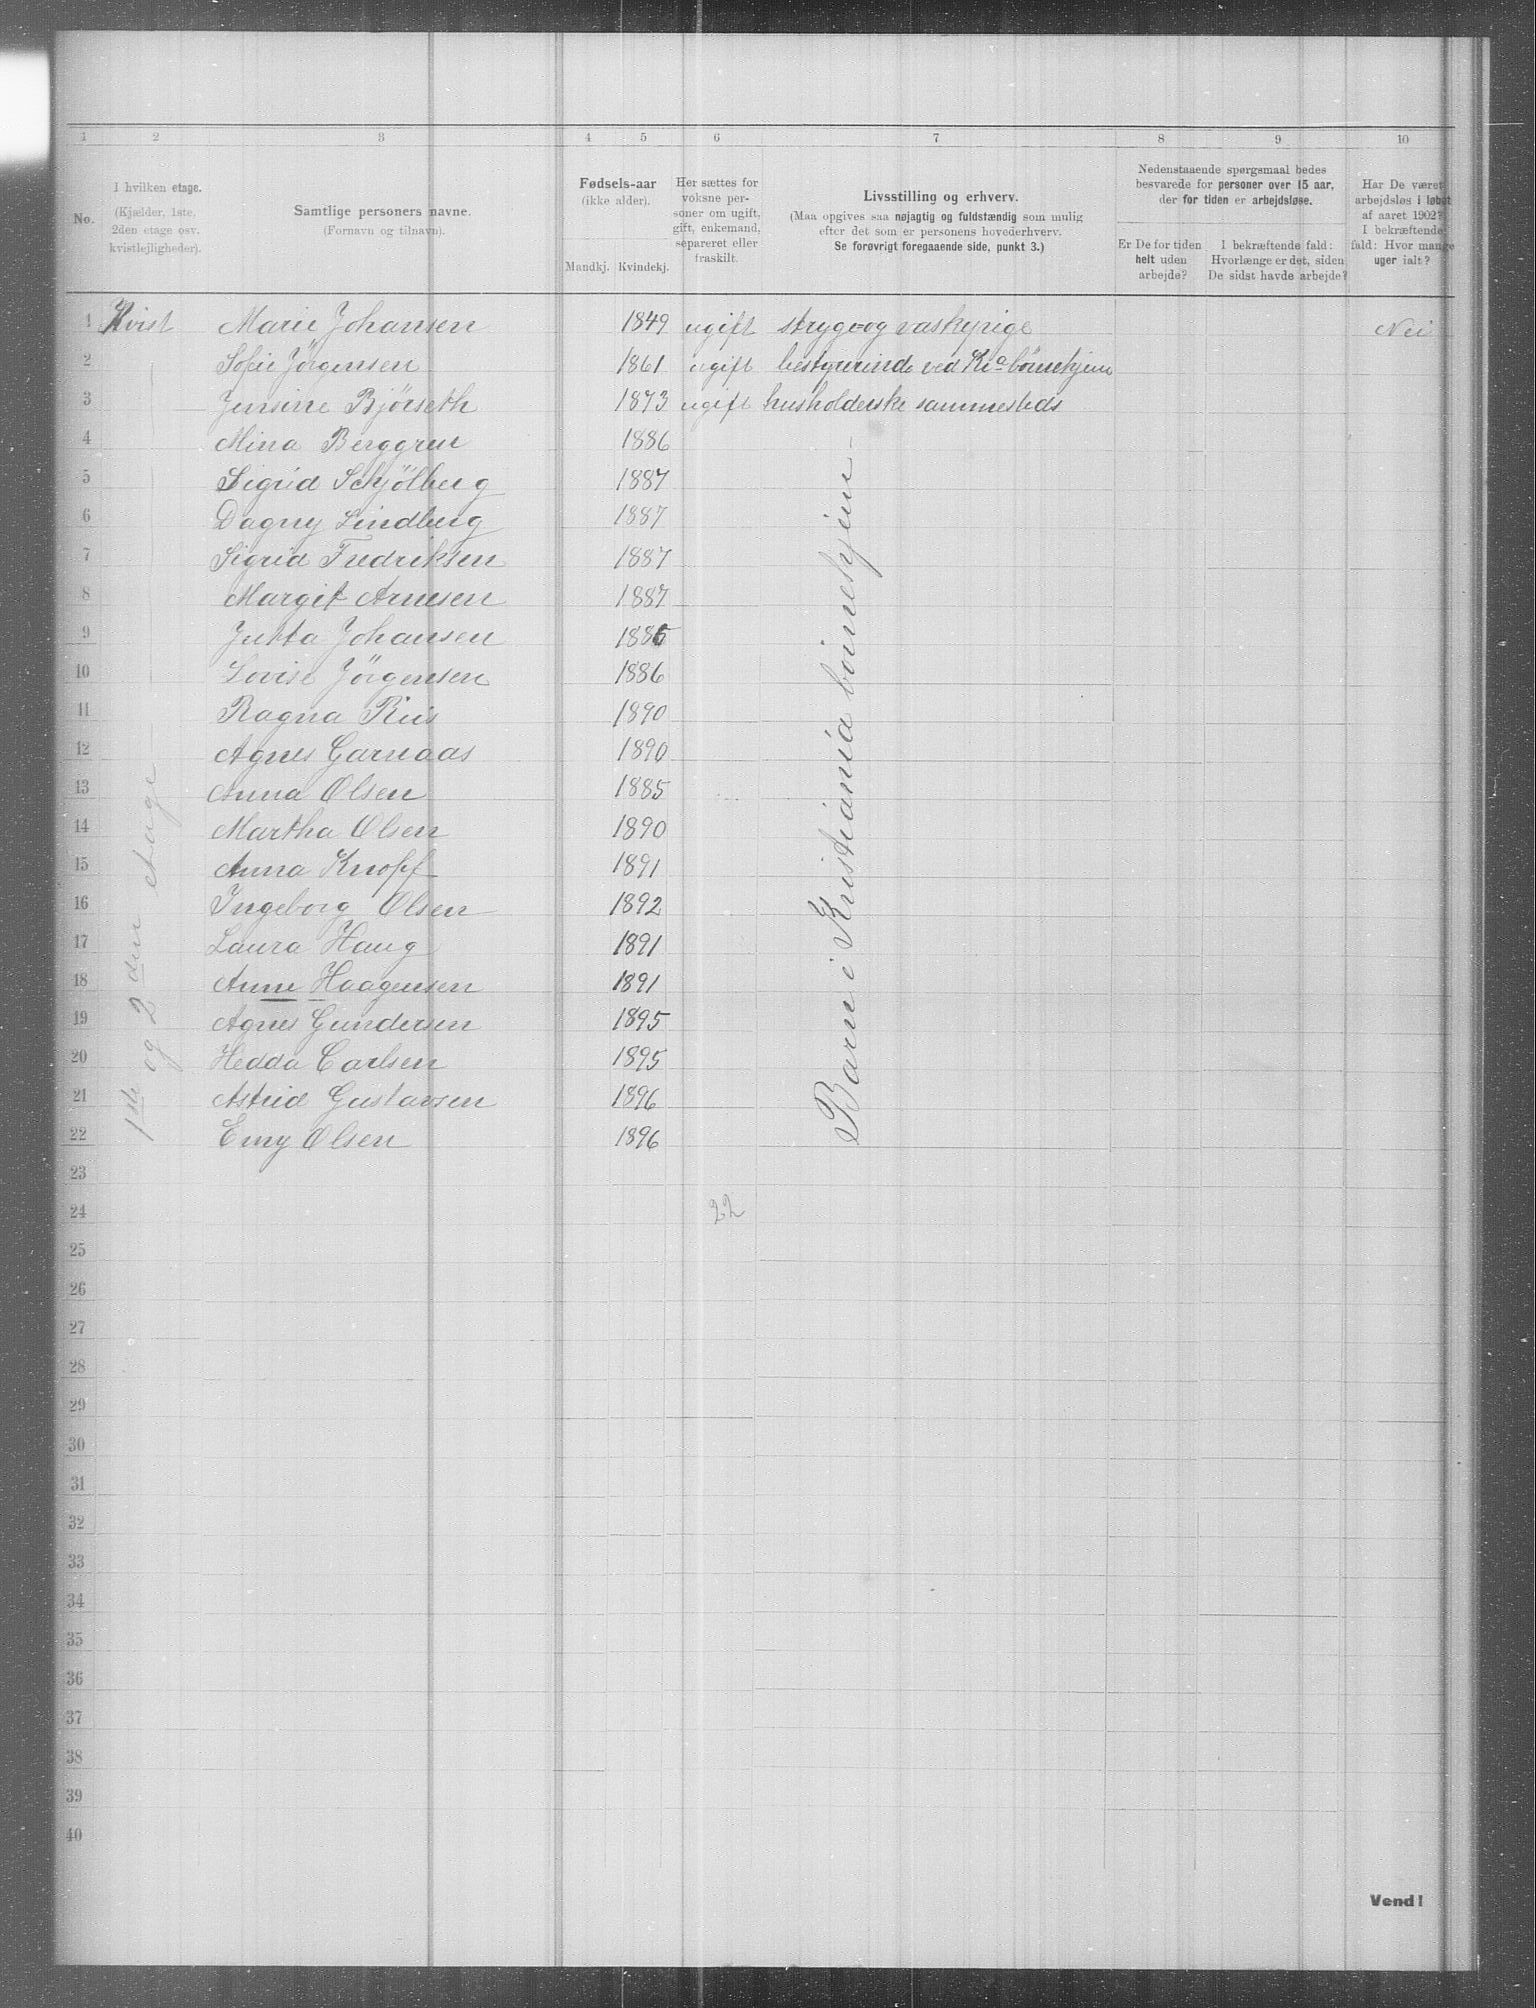 1 2 3 4 5 6 7 8 9 10
No.
I hvilken etage.
(Kjælder, 1ste,
2den etage osv.
kvistlejligheder).
Samtlige personers navne.
(Fornavn og tilnavn).
Fødsels-aar
(ikke alder).
Mandkj. Kvindekj.
Her sættes for
voksne per-
soner om ugift,
gift, enkemand,
separeret eller
fraskilt.
Livsstilling og erhverv.
(Maa opgives saa nøjagtig og fuldstændig som mulig
efter det som er personens hovederhverv.
Se forøvrigt foregaaende side, punkt 3.)
Nedenstaaende spørgsmaal bedes
besvarede for personer over 15 aar,
der for tiden er arbejdsløse.
Er De for tiden
helt uden
arbejde?
I bekræftende fald:
Hvorlænge er det, siden
De sidst havde arbejde?
Har De været
arbejdsløs i løbet
af aaret 1902?
I bekræftende
fald: Hvor mange
uger ialt?
1 Kvist Marie Johansen 1849 ugift stryge og vaskepige Nei
2 Sofie Jörgensen 1861 ugift bestyrerinde ved Kr.a börnehjem
3 Jensine Bjørseth 1873 ugift husholderske sammesteds
4 Mina Berggren 1886
5 Sigrid Schjölberg 1887
6 Dagny Lindberg 1887
7 Sigrid Fredriksen 1887
8 Margit Arnesen 1887
9 Jutta Johansen 1886
10 Lovise Jörgensen 1886
11 Ragna Riis 1890
12 Agnes Garnaas 1890
13 Anna Olsen 1885
14 Martha Olsen 1890
15 Anna Knoff 1891
16 Ingeborg Olsen 1892
17 Laura Haug 1891
18 Anne Haagensen 1891
19 Agnes Gundersen 1895
20 Hedda Carlsen 1895
21 Astrid Gustavsen 1896
22 Emy Olsen 1896
1ste og 2den etage
Barn i Kristiania börnehjem
23
24 22
25
26
27
28
29
30
31
32
33
34
35
36
37
38
39
40
Vend!